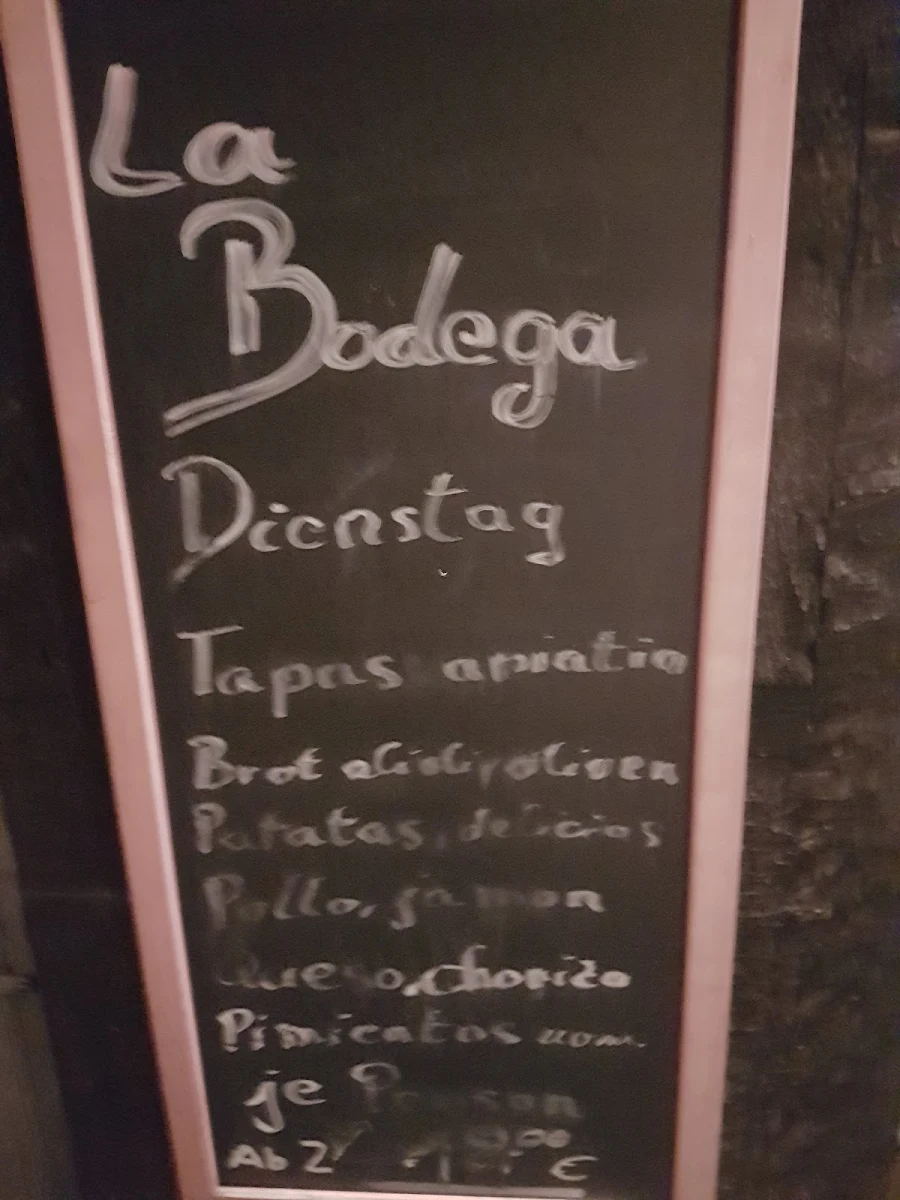 La
Bodega
Dienstag
Tapas
Brot alioli, oliven
Patatas, delicias
Pollo, jamon
Queso, chorizo
Pimientos uvm.
je Person
Ab 2 €